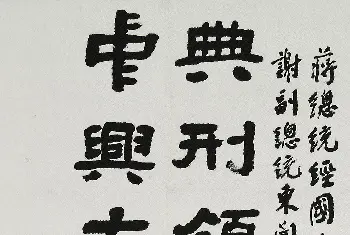 蔣總統經國
謝副總統東
典刑領
中興